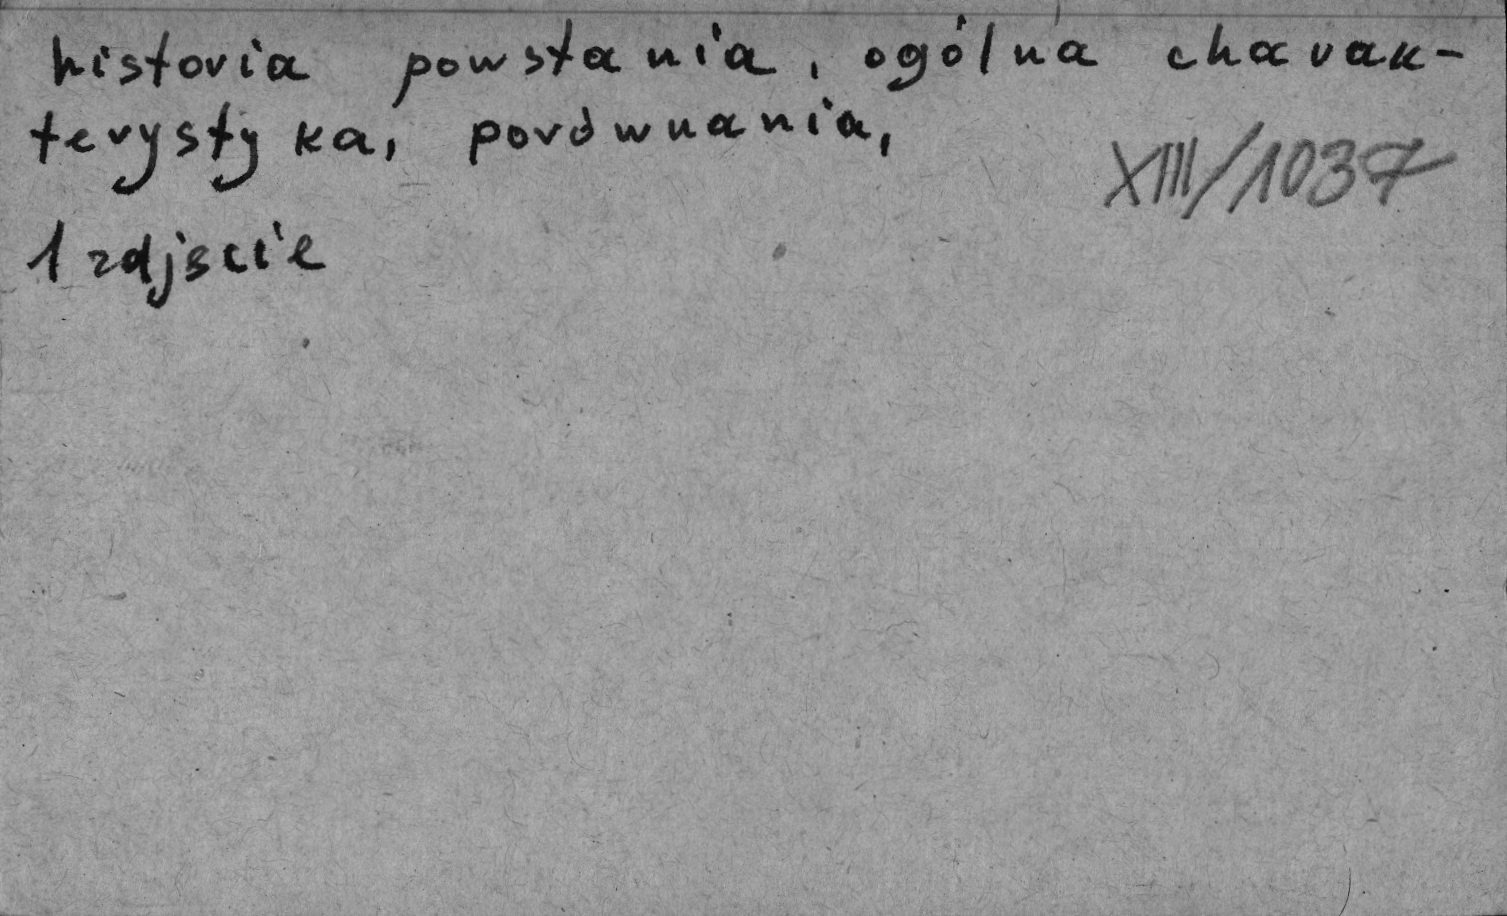 historia powstania, ogólna charak-
terystyka, porównania,
XIII/1037
1 zdjscie